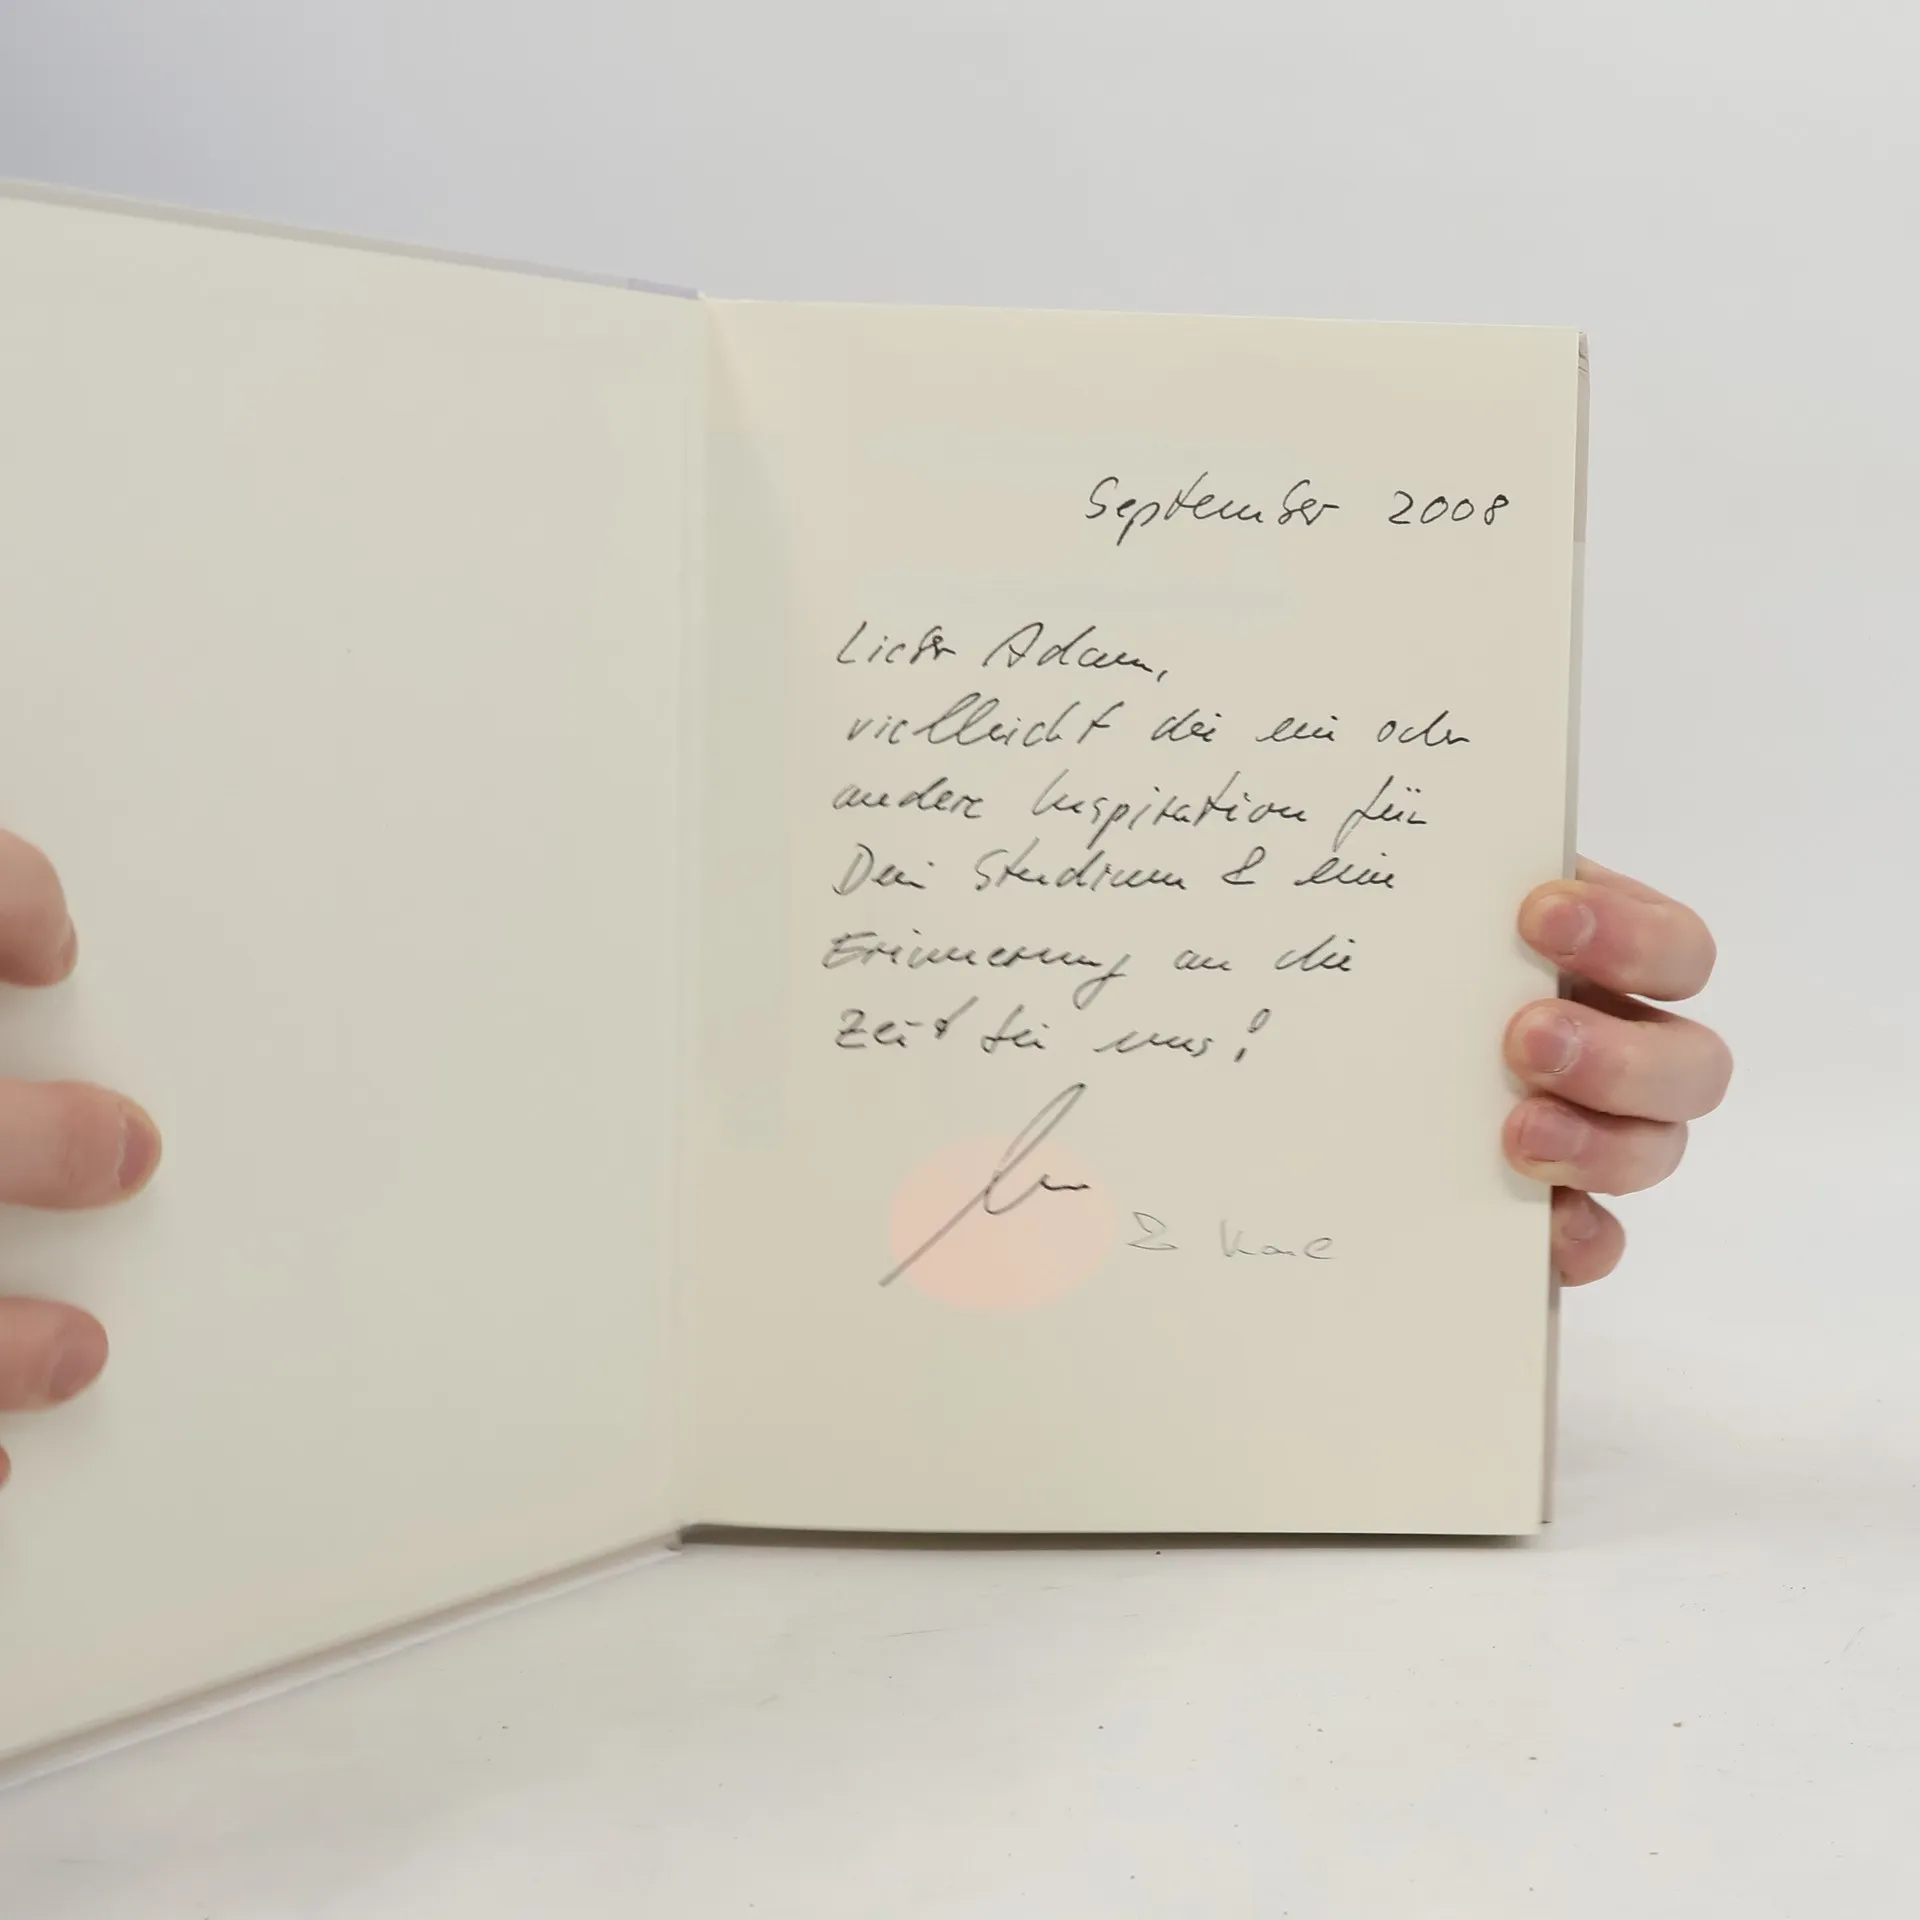 September 2008
Lieber Adam,
vielleicht die ein oder
andere Inspiration für
Dein Studium & eine
Erinnerung an die
Zeit bei uns!
&